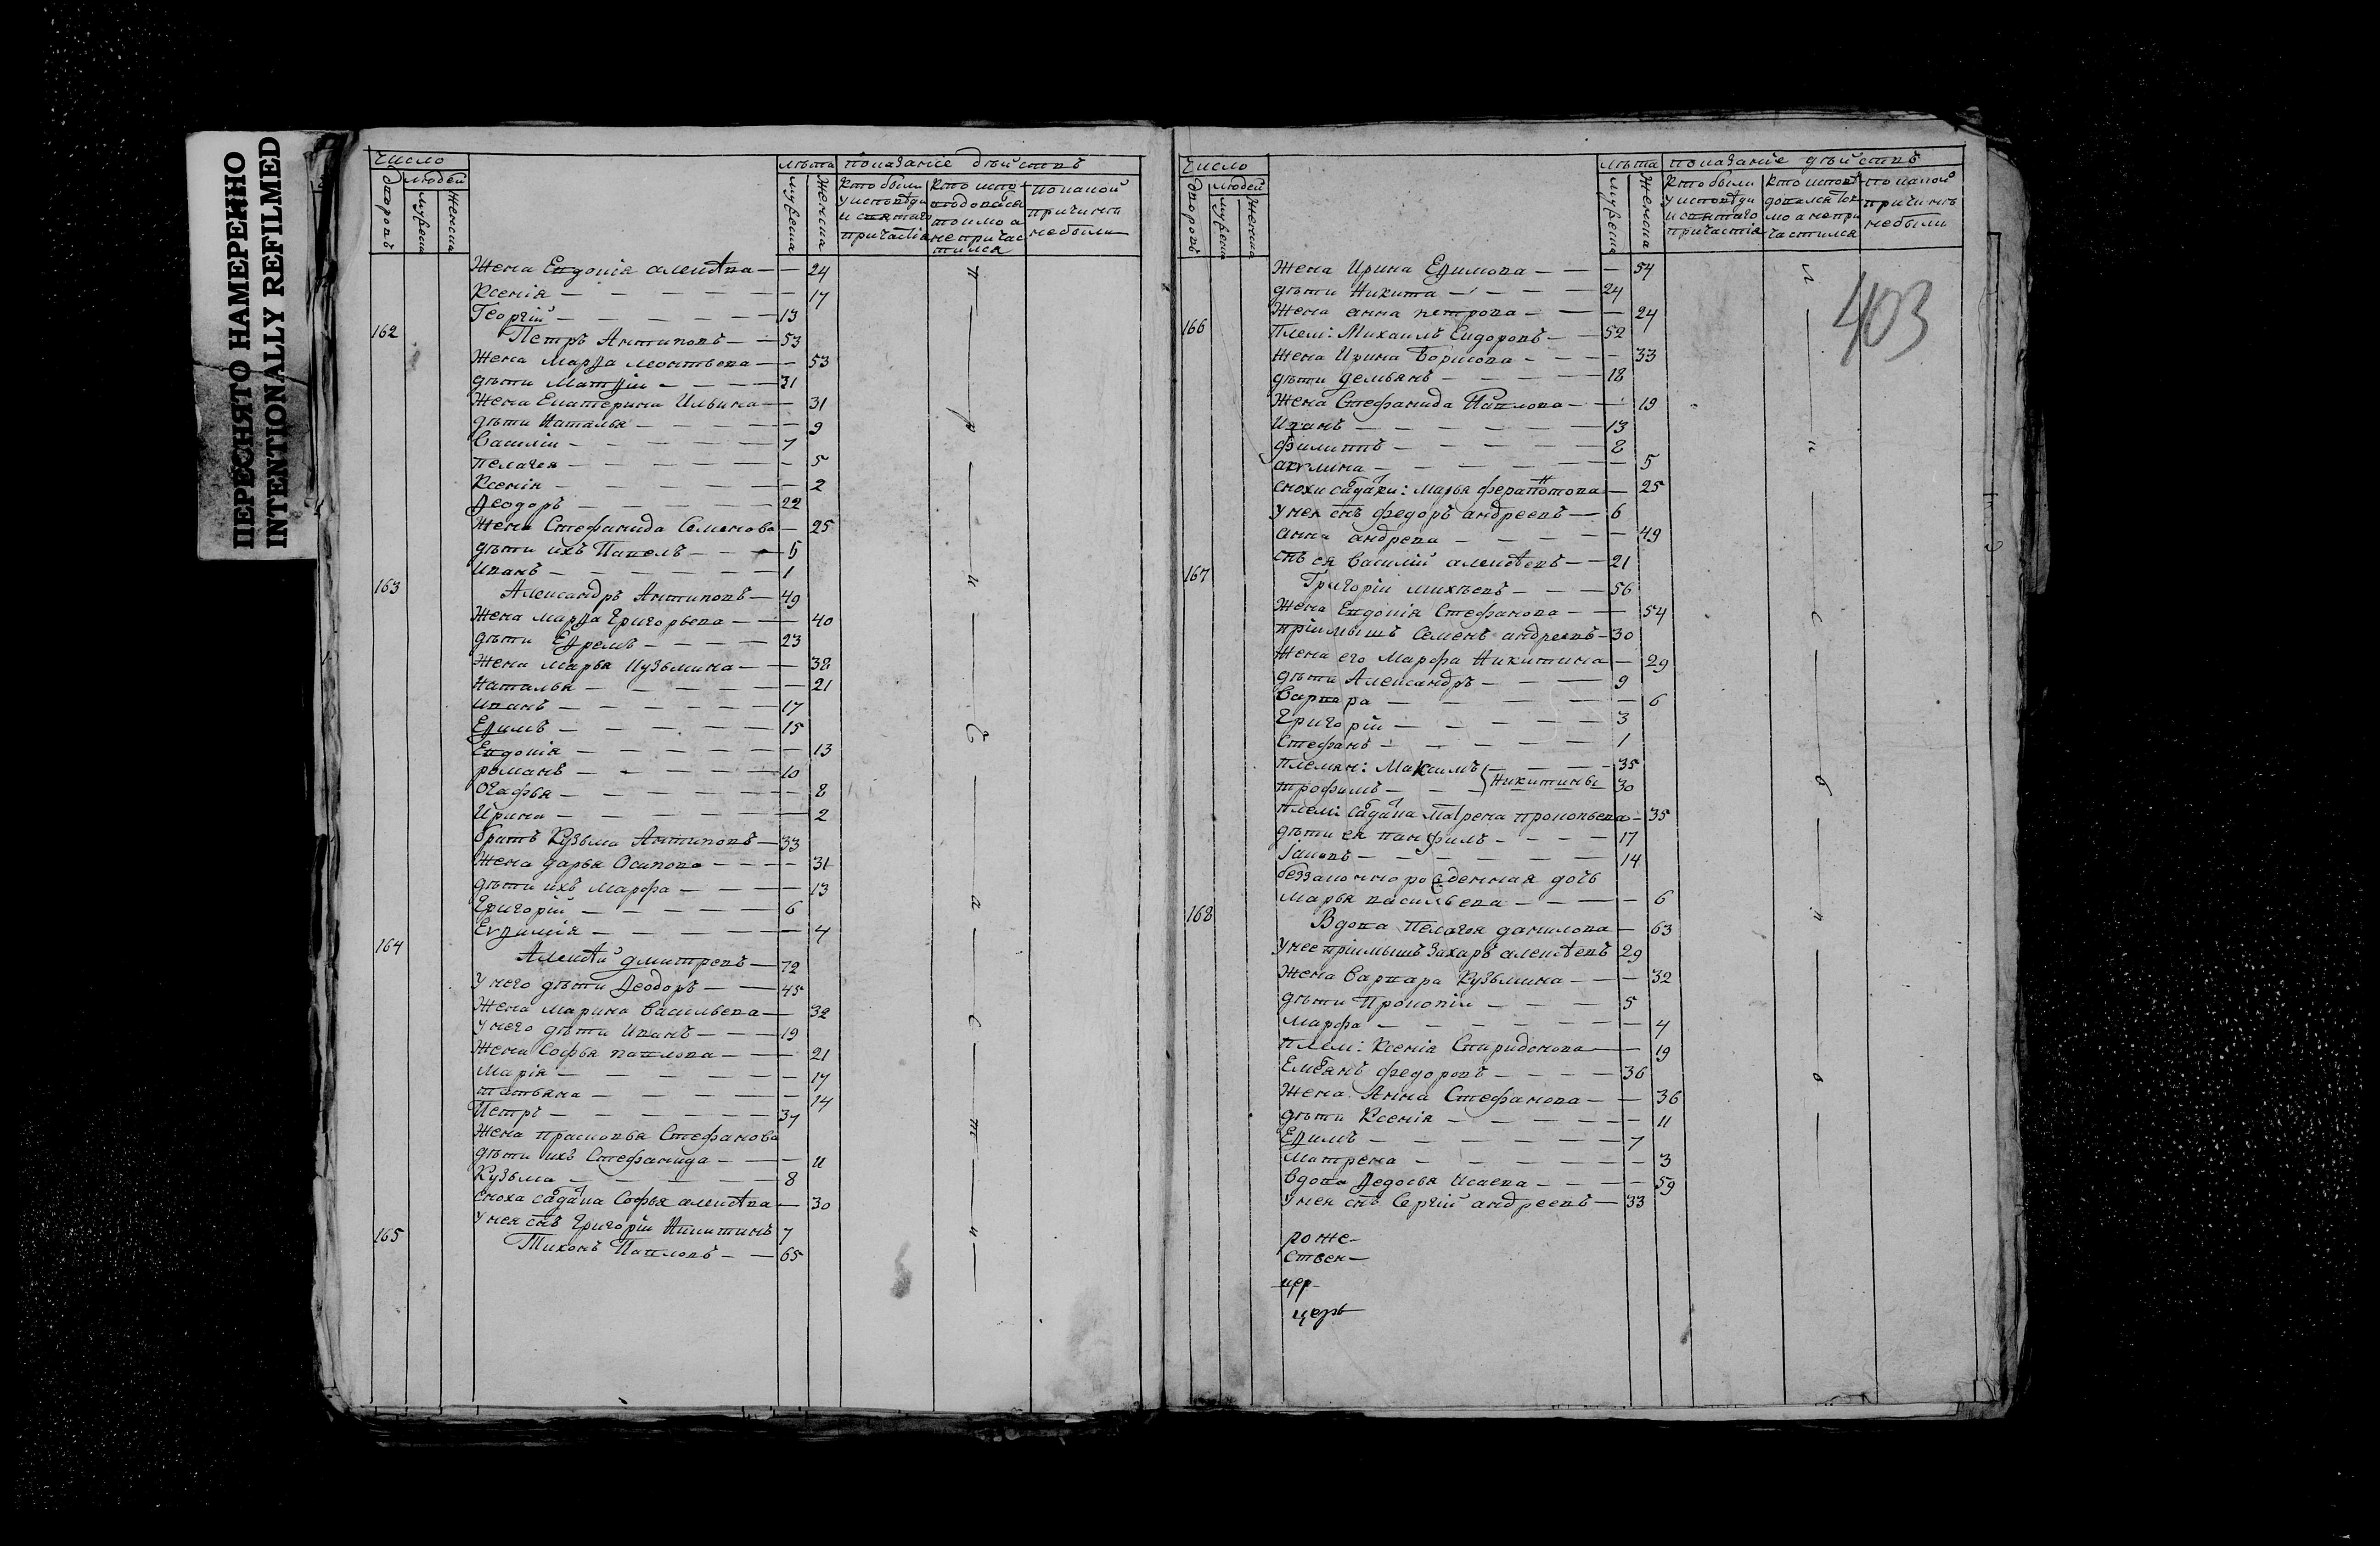 ПЕРЕСНЯТО НАМЕРЕННО
INTENTIONALLY REFILMED
число лѣта показаніе дѣйствъ
дворовъ людей мужеска женска мужеска женска
кто были у исповѣди и святаго причастія
кто исповѣдовался токмо а непричастился
по какой причинѣ небыли
Жена Евдокія алексѣева — — 24
Ксенія — — — 17
Георгій — — — 13
162 Петръ Антиповъ — — 53
Жена Марѳа леонтьева — — 53
дѣти Матѳій — — — 31
Жена Екатерина Ильина — — 31
дѣти Наталья — — — 9
Василій — — — 7
пелагея — — — 5
Ксенія — — — 2
Ѳеодоръ — — — 22
Жена Стефанида Семенова — 25
дѣти ихъ Павелъ — — 5
Иванъ — — — 1
163 Александръ Антиповъ — 49
Жена марѳа Григорьева — — 40
дѣти Еѳремъ — — — 23
Жена марья кузьмина — — 32
Наталья — — — 21
иванъ — — — 17
Еѳимъ — — — 15
Евдокія — — — 13
романъ — — — 10
Огафья — — — 8
Ирина — — — 2
братъ Кузьма Антиповъ — 33
Жена дарья Осипова — — — 31
дѣти ихъ марфа — — — 13
Григорій — — — 6
Еvѳимія — — — 4
164 Алексѣй дмитревъ — 72
У него дѣти Ѳеодоръ — — 45
Жена Марина Васильева — — 32
У него дѣти Иванъ — — 19
Жена Софья павлова — — 21
Марія — — — 17
татьяна — — — 14
Петръ — — — 37
Жена прасковья Стефанова
дѣти ихъ Стефанида — — — 11
Кузьма — — — 8
сноха салдатка Софья алексѣева — 30
у нея снъ Григорій Никитинъ 7
165 Тихонъ Павловъ — — 65
число лѣта показаніе дѣйствъ
дворовъ людей мужеска женска мужеска женска
кто были у исповѣди и святаго причастія
кто исповѣдовался токмо а непричастился
по какой причинѣ небыли
403
Жена Ирина Еѳимова — — — 54
дѣти Никита — — — 24
Жена анна петрова — — — 24
166 Плем: Михаилъ Сидоровъ — 52
Жена Ирина Борисова — — — 33
дѣти демьянъ — — — 18
Жена Стефанида Павлова — — 19
Иванъ — — — 13
филиппъ — — — 8
акулина — — — 5
снохи салдатки: марья ферапонтова — 25
у нея снъ федоръ андреевъ — 6
анна андрева — — — 49
снъ ея Василій алексѣевъ — 21
167 Григорій михѣевъ — — — 56
Жена Евдокія Стефанова — — 54
пріимышъ Семенъ андреевъ — 30
Жена его Марфа Никитина — 29
дѣти Александръ — — — 9
Варвара — — — 6
Григорій — — — 3
Стефанъ — — — 1
племян: Максимъ — — — 35
трофимъ — — } Никитины 30
плем: салдатка Матрена прокопьева — 35
дѣти ея панфилъ — — — 17
Iаковъ — — — 14
беззаконнорожденная дочь
Марья васильева — — — 6
168 Вдова Пелагея данилова — 63
у нее пріимышъ Захаръ алексѣевъ 29
Жена Варвара Кузьмина — — 32
дѣти Прокопій — — — 5
Марфа — — — 4
Плем: Ксенія Спиридонова — 19
Емельянъ федоровъ — — — 36
Жена Анна Стефанова — — 36
дѣти Ксенія — — — 11
Еѳимъ — — — 7
Матрена — — — 3
Вдова Ѳедосья Исаева — — — 59
У нея снъ Сергій андреевъ — 33
роже-
ствен-
цер-
церь